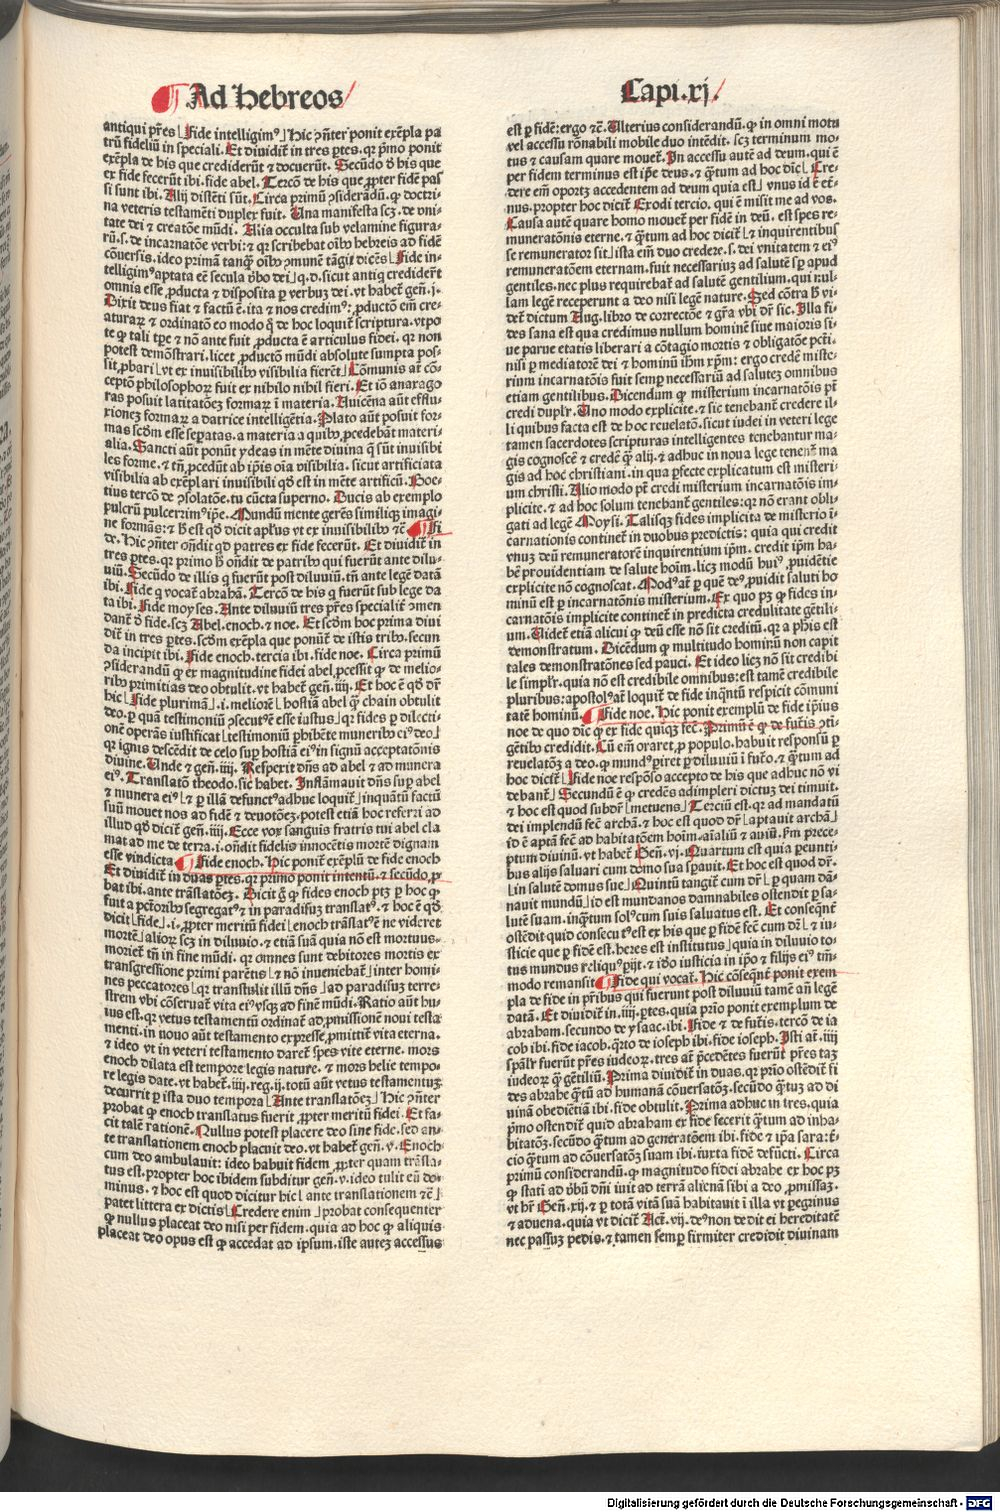 Ad Hebreos
Capi.xj.
antiqui pr̄es ⌊ Fide intelligimꝰ ⌋ Hic ↄn̄ter ponit exēpla pa
trū fideliū in speciali. Et diuidit̄ in tres ꝑtes. qr pͥmo ponit
exēpla de his que crediderūt ⁊ docuerūt. Secūdo ꝺ̄ his que
ex fide fecerūt ibi. fide abel. Tercō de his que ꝓpter fidē pas
si sunt ibi. Alij distēti sūt. Circa primū ↄsideradū. ꝙ doctri-
na veteris testamēti duplex fuit. Una manifesta scꝫ. de vni-
tate dei ⁊ creatōe mūdi. Alia occulta sub velamine figura-
rū. s. de incarnatōe verbi: ⁊ qr scribebat oībꝰ hebreis ad fidē
cōuersis. ideo primā tanqꝫ oībꝰ ↄmunē tāgit dicēs ⌊ Fide in-
telligimꝰ aptata eē secula ꝟbo dei ⌋ q. d. sicut antiq crediderūt
omnia esse ꝓducta ⁊ disposita ꝑ verbuꝫ dei. vt habet̄ gen̄. j.
Dixit deus fiat ⁊ factū ē. ita ⁊ nos credimꝰ: ꝓductō em̄ cre-
aturaꝝ ⁊ ordinatō eo modo q̄ de hoc loquit̄ scriptura. vtpo
te ꝙ tali tꝑe ⁊ nō ante fuit ꝓducta ē articulus fidei. qr non
potest demōstrari. licet ꝓductō mūdi absolute sumpta pos-
sit ꝓbari ⌊ vt ex inuisibilibꝰ visibilia fierent ⌋ Cōmunis at̄ cō-
ceptō philosophoꝝ fuit ex nihilo nihil fieri. Et iō anaxago
ras posuit latitatōeꝫ formaꝝ ī materia. Auicēna aūt efflu-
xioneꝫ formaꝝ a datrice intelligētia. Plato aūt posuit for-
mas scd̄m esse seꝑatas. a materia a quibꝰ ꝓcedebāt materi-
alia. Sancti aūt ponūt ydeas in mēte diuina q̄ sūt inuisibi
les forme. ⁊ tn̄ ꝓcedūt ab ip̄is oīa visibilia. sicut artificiata
visibilia ab exēplari inuisibili qd̄ est in mēte artificū. Boe-
tius tercō de ↄsolatōe. tu cūcta superno. Ducis ab exemplo
pulcrū pulcerrimꝰ ip̄e. Mundū mente gerēs similiqꝫ imagi-
ne formās: ⁊ h̄ est qd̄ dicit apl̄us vt ex inuisibilibꝰ ⁊c̄ Fi
de. Hic ↄn̄ter on̄dit qd patres ex fide fecerūt. Et diuidit̄ in
tres ꝑtes. qr primo h̄ on̄dit de patribꝰ qui fuerūt ante dilu-
uiū. Secūdo de illis q̄ fuerūt post diluuiū. tn̄ ante legē datā
ibi. Fide q vocat̄ abrahā. Tercō de his q fuerūt sub lege da
ta ibi. Fide moyses. Ante diluuiū tres pr̄es specialit̄ ↄmen
dant̄ ꝺ̄ fide. scꝫ Abel. enoch. ⁊ noe. Et scd̄m hoc prima diui
dit̄ in tres ꝑtes. scd̄m exēpla que ponūt̄ de istis tribꝰ. secun
da incipit ibi. Fide enoch. tercia ibi. fide noe. Circa primū
ↄsiderandū ꝙ ex magnitudine fidei abel ꝓcessit ꝙ de melio-
ribꝰ primitias deo obtulit. vt habet̄ gen̄. iiij. Et hoc ē qd̄ dr̄
hic ⌊ Fide plurimā ⌋ .i. meliorē ⌊ hostiā abel qꝫ chain obtulit
deo. ꝑ quā testimoniū ↄsecutꝰ ē esse iustus ⌋ qr fides ꝑ dilecti-
onē operās iustificat ⌊ testimoniū ꝑhibēte muneribꝰ eiꝰ deo ⌋
qr ignis descēdit de celo suꝑ hostiā eiꝰ in signū acceptatōnis
diuine. Unde ⁊ gen̄. iiij. Respexit dn̄s ad abel ⁊ ad munera
eiꝰ. Translatō theodo. sic habet. Inflāmauit dn̄s suꝑ abel
⁊ munera eiꝰ ⌊ ⁊ ꝑ illā defunctꝰ adhuc loquit̄ ⌋ inquātū factū
suū mouet nos ad fidē ⁊ deuotōeꝫ. potest etiā hoc referri ad
illud qd̄ dicit̄ gen̄. iiij. Ecce vox sanguis fratris tui abel cla
mat ad me de terra. i. on̄dit fidelis innocētis mortē dignam
esse vindicta Fide enoch. Hic ponit̄ exēplū de fide enoch
Et diuidit̄ in duas ꝑtes. qr primo ponit intentū. ⁊ secūdo. ꝓ
bat ibi. ante trāslatōeꝫ. Dicit g̊ ꝙ fides enoch ptꝫ ꝑ hoc ꝙ
fuit a pctōribꝰ segregatꝰ ⁊ in paradisuꝫ translatꝰ. ⁊ hoc ē qd̄
dicit ⌊ fide ⌋ .i. ꝓpter meritū fidei ⌊ enoch trāslatꝰ ē ne videret
mortē ⌋ alioꝝ scꝫ in diluuio. ⁊ etiā suā quia nō est mortuus.
moriet̄ tn̄ in fine mūdi. qr omnes sunt debitores mortis ex
transgressione primi parētis ⌊ ⁊ nō inueniebat̄ ⌋ inter homi-
nes peccatores ⌊ qr transtulit illū dn̄s ⌋ ad paradisuꝫ terre-
strem vbi cōseruat̄ vita eiꝰ vsqꝫ ad finē mūdi. Ratio aūt hu-
ius est. qr vetus testamentū ordinat̄ ad ꝓmissionē noui testa-
menti. in nouo aūt testamento expresse ꝓmittit̄ vita eterna.
⁊ ideo vt in veteri testamento daret̄ spes vite eterne. mors
enoch dilata est tempore legis nature. ⁊ mors helie tempo-
re legis date. vt habet̄. iiij. reg. ij. totū aūt vetus testamentuꝫ
decurrit ꝑ ista duo tempora ⌊ Ante translatōeꝫ ⌋ Hic ↄn̄ter
probat ꝙ enoch translatus fuerit ꝓpter meritū fidei. Et fa-
cit talē rationē. Nullus potest placere deo sine fide. sed an-
te translationem enoch placuit deo. vt habet̄ gen̄. v. Enoch
cum deo ambulauit: ideo habuit fidem ꝓpter quam trāsla-
tus est. propter hoc ibidem subditur gen̄. v. ideo tulit eū do-
minus. ⁊ hoc est quod dicitur hic ⌊ ante translationem ⁊c̄ ⌋
patet littera ex dictis ⌊ Credere enim ⌋ probat consequenter
ꝙ nullus placeat deo nisi per fidem. quia ad hoc ꝙ aliquis
placeat deo opus est ꝙ accedat ad ipsum. iste auteꝫ accessus
est ꝑ fidē: ergo ⁊c̄. Ulterius considerandū. ꝙ in omni motu
vel accessu rōnabili mobile duo intēdit. scꝫ terminum mo-
tus ⁊ causam quare mouet̄. In accessu autē ad deum. qui ē
per fidem terminus est ip̄e deus. ⁊ q̄tum ad hoc dic̄ ⌊ Cre-
dere em̄ oportꝫ accedentem ad deum quia est ⌋ vnus id ē et̄-
nus. propter hoc dicit̄ Exodi tercio. qui ē misit me ad vos.
Causa autē quare homo mouet̄ per fidē in deū. est spes re-
muneratōnis eterne. ⁊ q̄tum ad hoc dicit̄ ⌊ ⁊ inquirentibus
se remunerator sit ⌋ ista em̄ duo credere. s. dei vnitatem ⁊ eiꝰ
remuneratōem eternam. fuit necessariuꝫ ad salutē sꝑ apud
gentiles. nec plus requirebat̄ ad salutē gentilium. qui nul-
lam legē receperunt a deo nisi legē nature. Sed cōtra h̄ vi-
det̄ dictum Aug. libro de correctōe ⁊ gr̄a vbi dr̄ sic. Illa fi-
des sana est qua credimus nullum hominē siue maioris si-
ue parue etatis liberari a cōtagio mortis ⁊ obligatōe pcti.
nisi ꝑ mediatorē dei ⁊ hominū ih̄m xp̄m: ergo credē miste-
rium incarnatōis fuit semꝑ necessariū ad saluteꝫ omnibus
etiam gentilibus. Dicendum ꝙ misterium incarnatōis pt̄
credi duplr̄. Uno modo explicite. ⁊ sic tenebant̄ credere il-
li quibus facta est de hoc reuelatō. sicut iudei in veteri lege
tamen sacerdotes scripturas intelligentes tenebantur ma-
gis cognoscē ⁊ credē ꝙ alij. ⁊ adhuc in noua lege tenent̄ ma
gis ad hoc christiani. in qua ꝑfecte explicatum est misteri-
um christi. Alio modo pt̄ credi misterium incarnatōis im-
plicite. ⁊ ad hoc solum tenebant̄ gentiles: qr nō erant obli-
gati ad legē Moysi. Talisqꝫ fides implicita de misterio ī-
carnationis continet̄ in duobus predictis: quia qui credit
vnuꝫ deū remuneratorē inquirentium ip̄m. credit ip̄m ha-
bē prouidentiam de salute hoīm. licꝫ modū huiꝰ ꝓuidētie
explicite nō cognoscat. Modꝰ at̄ ꝑ quē deꝰ ꝓuidit saluti ho
minū est ꝑ incarnatōnis misterium. Ex quo pꝫ ꝙ fides in-
carnatōis implicite continet̄ in predicta credulitate gētili-
um. Uidet̄ etiā alicui ꝙ deū esse nō sit creditū. qr a ph̄is est
demonstratum. Dicēdum ꝙ multitudo hominū non capit
tales demonstratōnes sed pauci. Et ideo licꝫ nō sit credibi
le simplr̄. quia nō est credibile omnibus: est tamē credibile
pluribus: apostolꝰ at̄ loquit̄ de fide inq̄ntū respicit cōmuni
tatē hominū. Fide noe. Hic ponit exemplū de fide ip̄ius
noe de quo dic̄ ꝙ ex fide quinqꝫ fec̄. Primū ē ꝙ de futis ↄti-
gētibꝰ credidit. Cū em̄ oraret̄ ꝓ populo. habuit responsū ꝑ
reuelatōꝫ a deo. ꝙ mundꝰ ꝑiret ꝑ diluuiū ī futo. ⁊ q̄tum ad
hoc dicit̄ ⌊ Fide noe respōso accepto de his que adhuc nō vi
debant̄ ⌋ Secundū ē ꝙ credēs adimpleri dictuꝫ dei timuit.
⁊ hoc est quod subdr̄ ⌊ metuens ⌋ Terciū est. qr ad mandatū
dei implendū fec̄ archā. ⁊ hoc est quod dr̄ ⌊ aptauit archā ⌋
id ē aptā fec̄ ad habitatōem hoīm. aīaliū ⁊ auiū. ẜm prece-
ptum diuinū. vt habet̄ Gen̄. vj. Quartum est quia ꝑeunti-
bus alijs saluari cum domo sua sꝑauit. Et hoc est quod dr̄.
⌊ in salutē domus sue ⌋ Quintū tangit̄ cum dr̄ ⌊ ꝑ quam dā-
nauit mundū ⌋ id est mundanos damnabiles ostendit ꝑ sa-
lutē suam. inq̄tum solꝰ cum suis saluatus est. Et conseqn̄t̄
ostēdit quid consecutꝰ est ex his que ꝑ fidē fec̄ cum dr̄ ⌊ ⁊ iu-
sticie que ꝑ fidē est. heres est institutus ⌋ quia in diluuio to-
tus mundus reliquꝰ ꝑijt. ⁊ iō iusticia in ip̄o ⁊ filijs eiꝰ tm̄-
modo remansit. Fide qui vocat̄. Hic cōseqn̄t̄ ponit exem
pla de fide in pr̄ibus qui fuerunt post diluuiū tamē an̄ legē
datā. Et diuidit̄ in. iiij. ꝑtes. quia prīo ponit exemplum de
abraham. secundo de ysaac. ibi. Fide ⁊ de fut̄is. tercō de ia
cob ibi. fide iacob. q̄rto de ioseph ibi. fide ioseph. Isti at̄. iiij
spālr̄ fuerūt pr̄es iudeoꝝ. tres at̄ p̄cedētes fuerūt pr̄es taꝫ
iudeoꝝ ꝙ gētiliū. Prima diuidit̄ in duas. qr prīo ostēdit fi
des abrahe q̄tū ad humanā cōuersatōꝫ. secūdo q̄tuꝫ ad di
uinā obedietiā ibi. fide obtulit. Prima adhuc in tres. quia
pͥmo ostendit quid abraham ex fide fecerit q̄tum ad inha-
bitatōꝫ. secūdo q̄tum ad generatōem ibi. fide ⁊ ip̄a sara: t̄-
cio q̄tum ad cōuersatōꝫ suam ibi. iuxta fidē defūcti. Circa
primū considerandū. ꝙ magnitudo fidei abrahe ex hoc pꝫ
ꝙ stati ad ꝟbū dn̄i iuit ad terrā alienā sibi a deo ꝓmissaꝫ.
vt hr̄ Gen̄. xij. ⁊ ꝑ totā vitā suā habitauit ī illa vt ꝑegrinus
⁊ aduena. quia vt dicit̄ Act̄. vij. deꝰ non dedit ei hereditatē
nec passuꝫ pedis. ⁊ tamen semꝑ firmiter credidit diuinam
Digitalisierung gefördert durch die Deutsche Forschungsgemeinschaft - DFG